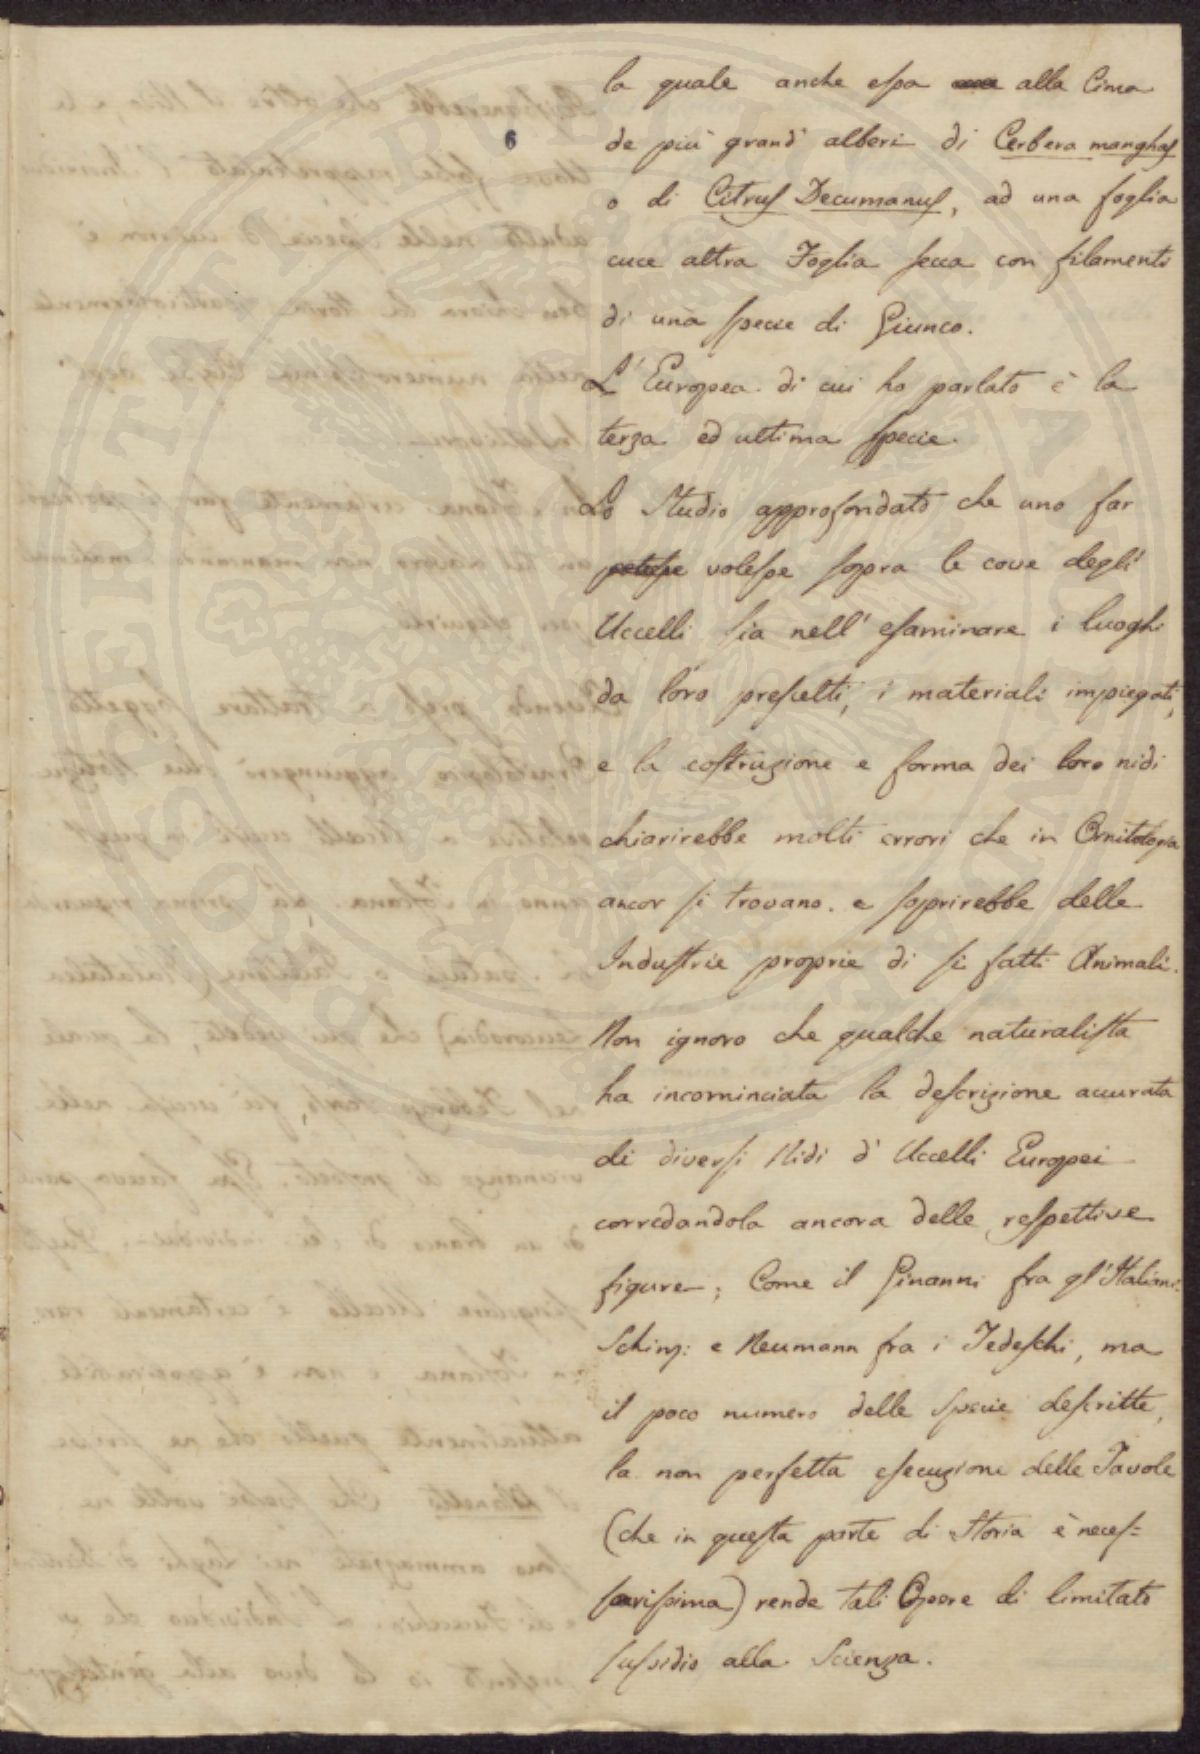 6
la quale anche eſsa alla Cima
de più grandi alberi di Cerbera manghas
o di Citruſ Decumanuſ, ad una foglia
cuce altra Foglia ſecca con filamenti
di una ſpecie di Giunco.
L'Europea di cui ho parlato è la
terza ed ultima ſpecie.
Lo Studio approfondato che uno far
poteſse voleſse ſopra le cove degli
Uccelli ſia nell' eſaminare i luoghi
da loro preſcelti, i materiali impiegati,
e la coſtruzione e forma dei loro nidi
chiarirebbe molti errori che in Ornitologia
ancor ſi trovano. e ſcoprirebbe delle
Induſtrie proprie di ſi fatti Animali.
Non ignoro che qualche naturaliſta
ha incominciata la deſcrizione accurata
di diverſi Nidi d' Uccelli Europei
corredandola ancora delle reſpettive
figure; Come il Ginanni fra gl'Italiani:
Schinz: e Neumann fra i Tedeſchi, ma
il poco numero delle ſpecie deſcritte,
la non perfetta eſecuzione delle Tavole
(che in queſta parte di Storia è neceſ=
ſariſsima) rende tali Opere di limitato
ſuſsidio alla Scienza.